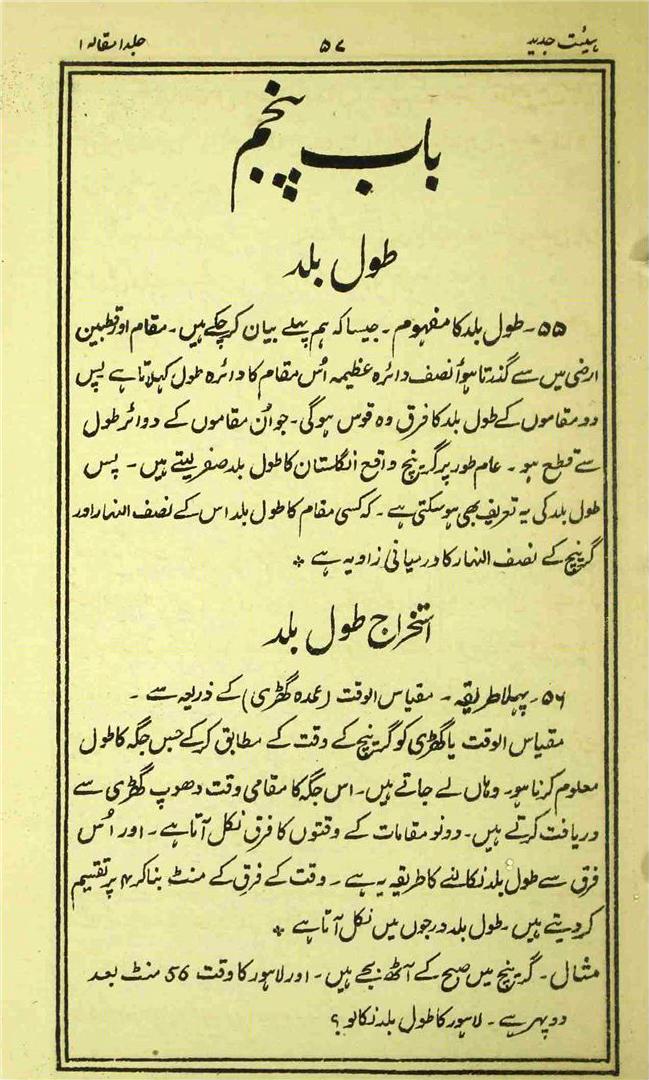 ہیئت جدید ۵۷ جلد۱ مقالہ ۱
باب پنجم
طول بلد
۵۵۔ طول بلد کا مفہوم ۔ جیسا کہ ہم پہلے بیان کر چکے ہیں ۔ مقام اور قطبین
ارضی میں سے گذرتا ہوأ نصف دائرہ عظیمہ اُس مقام کا دائرہ طول کہلاتا ہے پس
دو مقاموں کے طول بلد کا فرق وہ قوس ہوگی ۔ جو اُن مقاموں کے دوائر طول
سے قطع ہو ۔ عام طور پر گرینچ واقع انگلستان کا طول بلد صفر لیتے ہیں ۔ پس
طول بلد کی یہ تعریف بھی ہو سکتی ہے ۔ کہ کسی مقام کا طول بلد اس کے نصف النہار اور
گرینچ کے نصف النہار کا درمیانی زاویہ ہے *
استخراج طول بلد
۵۶۔ پہلا طریقہ ۔ مقیاس الوقت (عمدہ گھڑی) کے ذریعہ سے ۔
مقیاس الوقت یا گھڑی کو گرینچ کے وقت کے مطابق کر کے جس جگہ کا طول
معلوم کرنا ہو ۔ وہاں لے جاتے ہیں ۔ اس جگہ کا مقامی وقت دھوپ گھڑی سے
دریافت کرتے ہیں ۔ دونو مقامات کے وقتوں کا فرق نکل آتا ہے ۔ اور اُس
فرق سے طول بلد نکالنے کا طریقہ یہ ہے ۔ وقت کے فرق کے منٹ بنا کر ۴ پر تقسیم
کر دیتے ہیں ۔ طول بلد درجوں میں نکل آتا ہے *
مثال ۔ گرینچ میں صبح کے آٹھ بجے ہیں ۔ اور لاہور کا وقت 56 منٹ بعد
دوپہر ہے ۔ لاہور کا طول بلد نکالو ؟